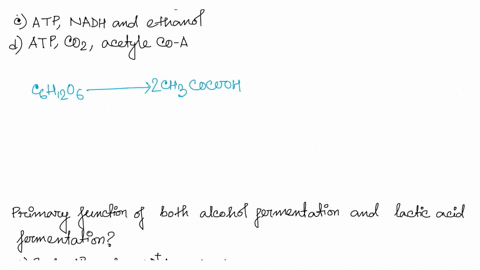 c) ATP, NADH and ethanol
d) ATP, CO2, acetyle CO-A
C6H12O6 ⟶ 2CH3COCOOH
Primary function of both alcohol fermentation and lactic acid
fermentation?